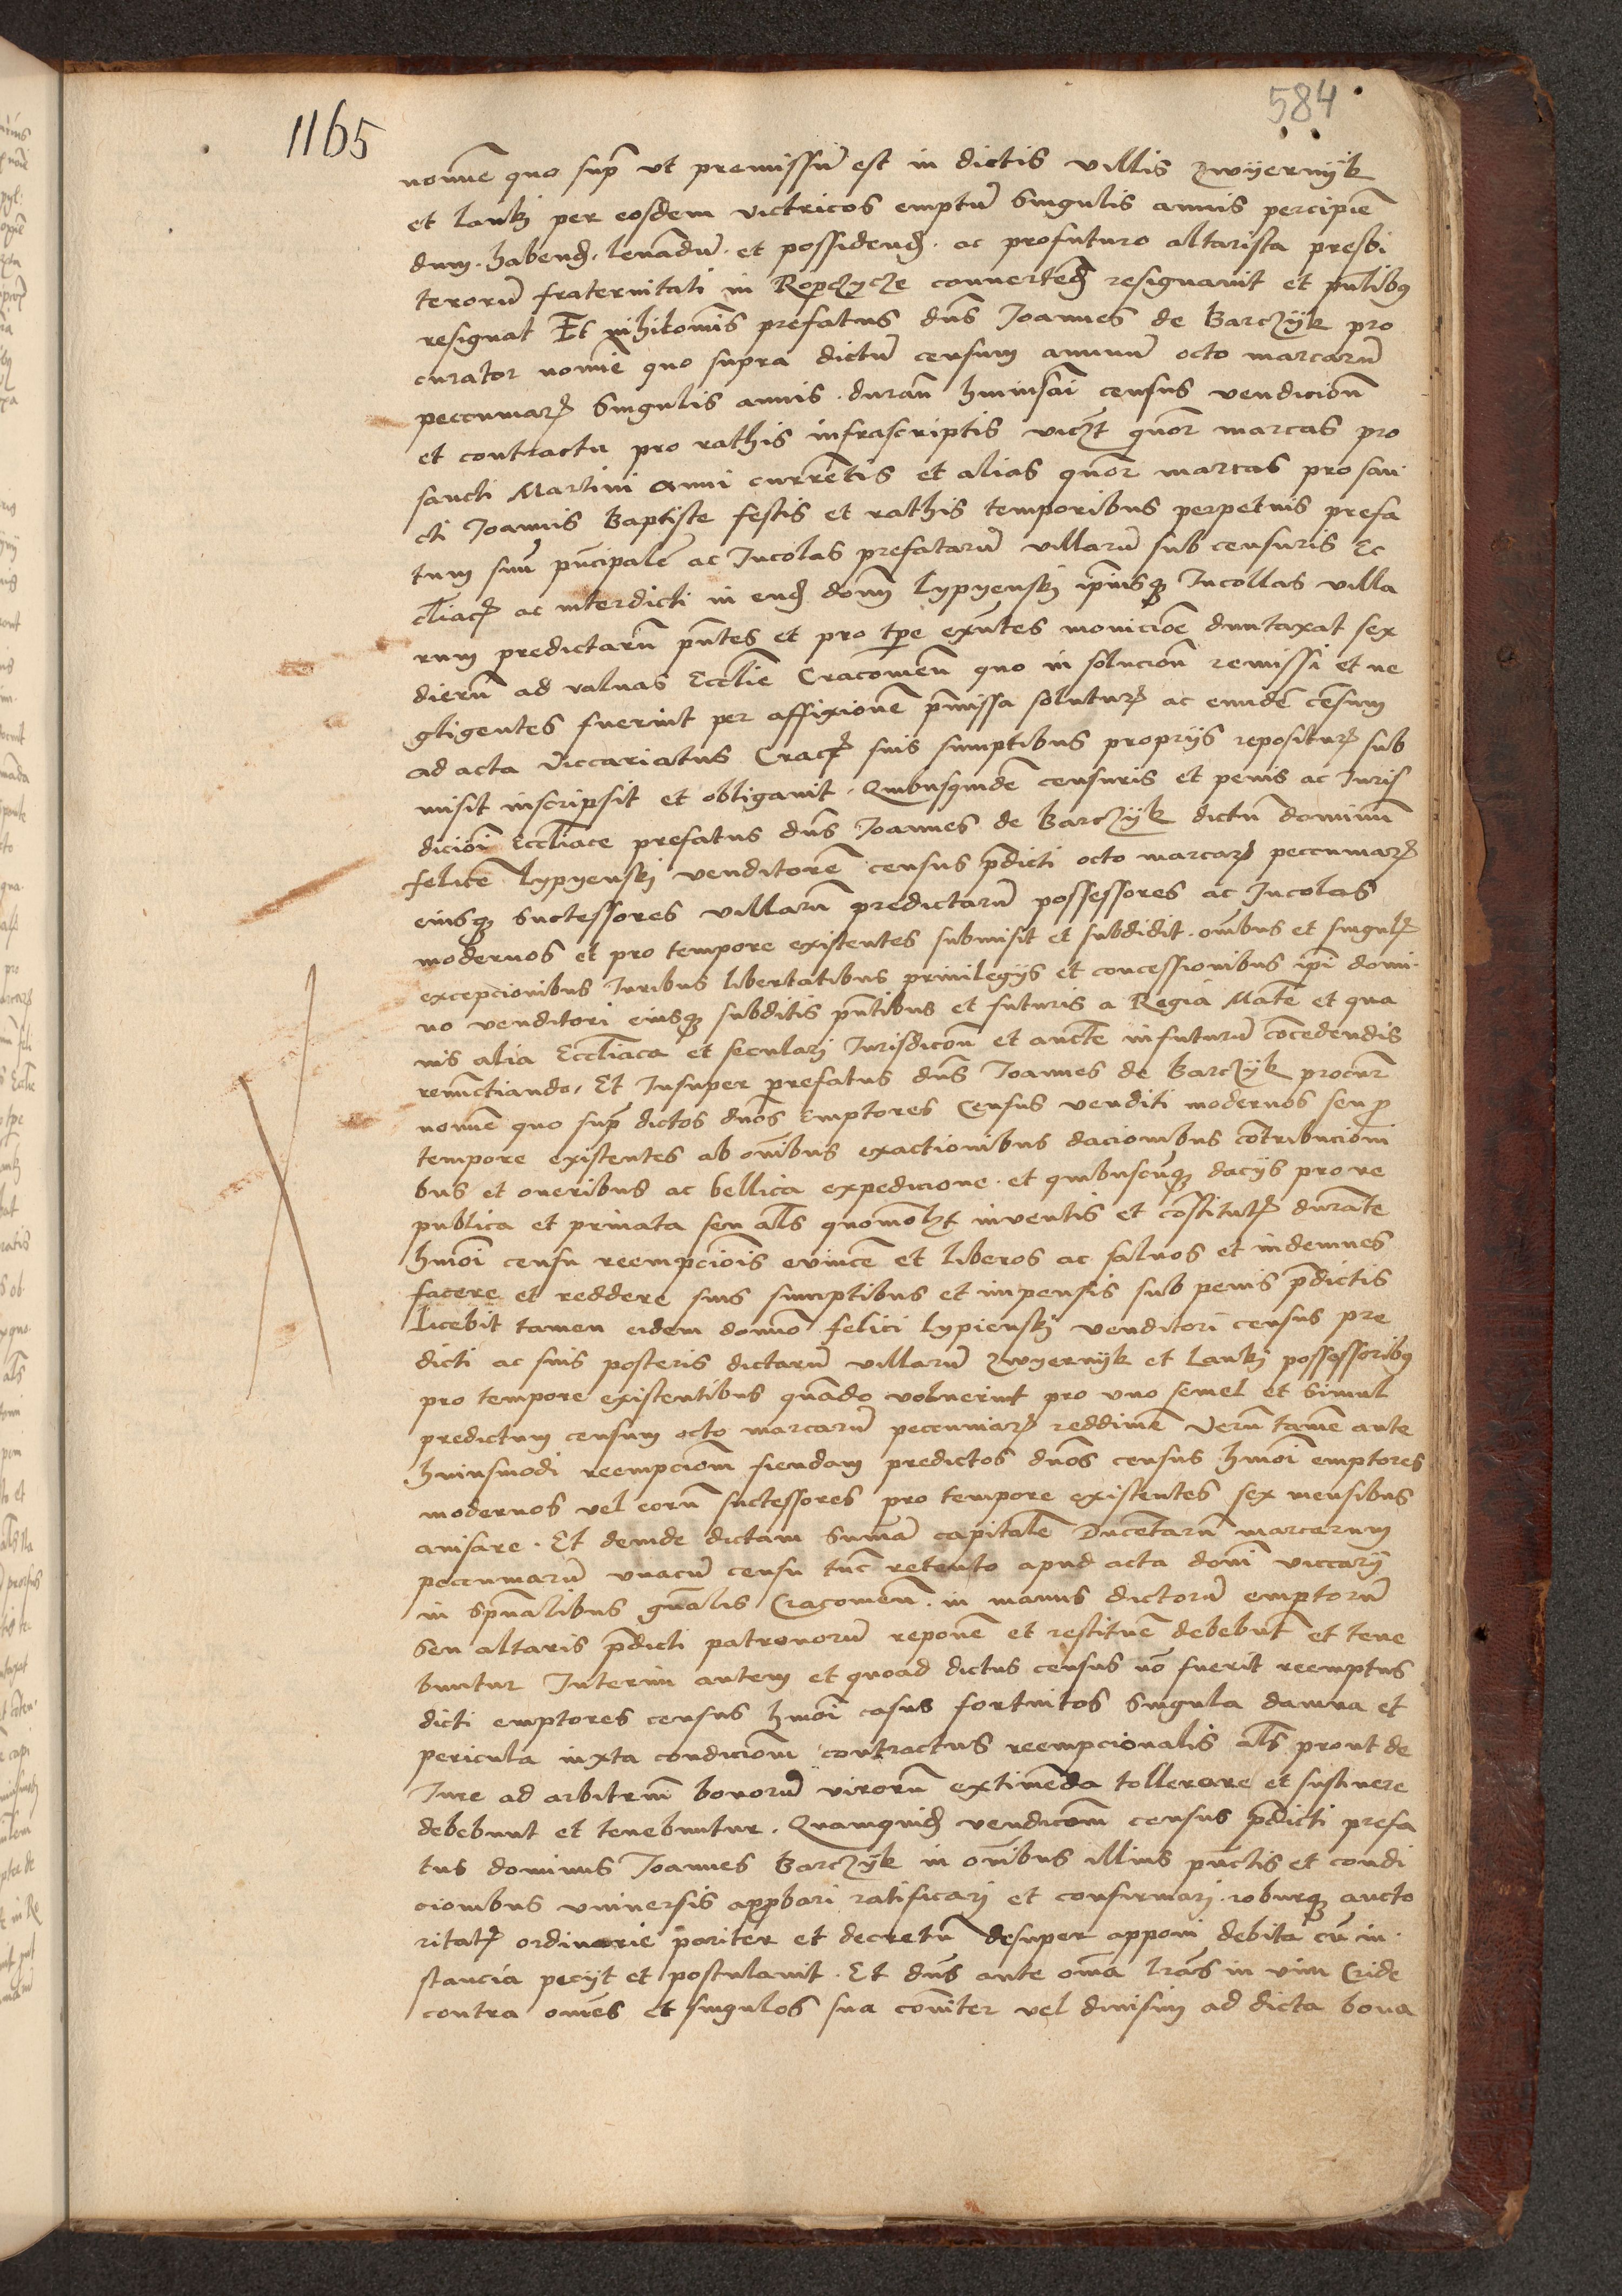 584
1165
nomie quo sup̄ ut premissū est in dictis villis Zwyernyk
et lanki per eosdem victricos emptū singulis annis percipien̄
dum . habend̄ . levandū . et possidend̄ . ac pro futuro altarista presbi
terorū fraternitati in Ropczycze convertend̄ resignavit et pn̄tibus
resignat Et nihilomīs prefatus dn̄s Joannes de Barczyk pro
curator nomīe quo supra dictū censum annuū octo marcarū
peccuniarꝝ singulis annis . duran̄ huiusm̄i census vendicion̄
et contractu pro rathis infrascriptis vicꝫt quor̄ marcas pro
sancti Martini anni currētis et alias quor̄ marcas pro san
cti Joannis Baptiste festis et rathis temporibus perpetuis prefa
tum suū pn̄cipalē ac Incolas prefatarū villarū sub censuris Ec
cl̄iacꝝ ac interdicti in eūd̄ dom̄ Lypyenski ip̄iusqꝫ Incollas villa
rum predictarū pn̄tes et pro tp̄e exn̄tes monicioē duntaxat sex
dierū ad valvas Eccl̄ie Cracovien̄ quo in solucion̄ remissi et ne
gligentes fuerint per affixionē pm̄issa soluturꝝ ac eundē cēsum
ad acta viccariatus Cracꝝ suis sumptibus proprijs repositurꝝ sub
misit inscripsit et obligavit . Quibusquidē censuris et penis ac Juris
dicioī Eccl̄iace prefatus dn̄s Joannes de Barczyk dictū dominū
felicē lypyenski venditorē census p̄dicti octo marcarꝝ peccuniarꝝ
eiusqꝫ successores villarū predictarū possessores ac Incolas
modernos et pro tempore existentes submisit et subdidit . om̄ibus et singulꝝ
excepcionibus Iuribus libertatibus privilegijs et concessionibus ip̄i domi-
no venditori eiusqꝫ subditis pn̄tibus et futuris a Regia Mat̄e et qua
vis alia Eccl̄iaca et seculari Jurisdicōn et auctē in futurū cōcedendis
renūctiando . Et Insuper prefatus dn̄s Joannes de Barczyk procur̄
nomīe quo sup̄ dictos dn̄os Emptores Census venditi modernos seu p̄
tempore existentes ab om̄ibus exactionibus dacionibus cōtribucioni
bus et oneribus ac bellica expedicione . et quibuscūqꝫ dacijs pro re
publica et privata seu al̄s quomōlꝫt inventis et cōstitutꝝ durāte
hm̄oi censu reempciois evincē et liberos ac salvos et indemnes
facere et reddere suis sumptibus et impensis sub penis p̄dictis
Licebit tamen eidem domīo felici lypienski venditori census pre
dicti ac suis posteris dictarū villarū Zwyernyk et Lanki possessoribus
pro tempore existentibus quādo voluerint pro uno semel et simul
predictum censum octo marcarū peccuniarꝝ reddimē Verū tamē ante
huiusmodi reempciom̄ fiendam predictos dn̄os census hm̄oi emptores
modernos vel eorū successores pro tempore existentes sex mensibus
avisare . Et deinde dictam sūmā capitalē Ducētarū marcarum
peccuniarū unacū censu tūc retento apud acta dom̄i viccarij
in spūalibus gn̄alis Cracovien̄ . in manus dictorū emptorū
seu altaris p̄dicti patronorū reponē et restituē debebūt et tene
buntur Interim autem et quoad dictus census nō fuerit reemptus
dicti emptores census hm̄oi casus fortuitos singula damna et
pericula iuxta condiciom̄ contractus reempcionalis al̄s prout de
Iure ad arbitriū bonorū virorū extimēda tollerare et sustinere
debebunt et tenebuntur . Quamquid̄ vendicom̄ census p̄dicti prefa
tus dominus Joannes Barczyk in om̄ibus illius pūctis et condi
cionibus universis app̄bari ratificari et confirmari . roburqꝫ aucto
ritatꝝ ordinarie pariter et decretū desuper apponi debita cū in-
stancia pecijt et postulavit . Et dn̄s ante om̄a lr̄as in vim Cride
contra om̄es et singulos sua cōiter vel divisim ad dicta bona